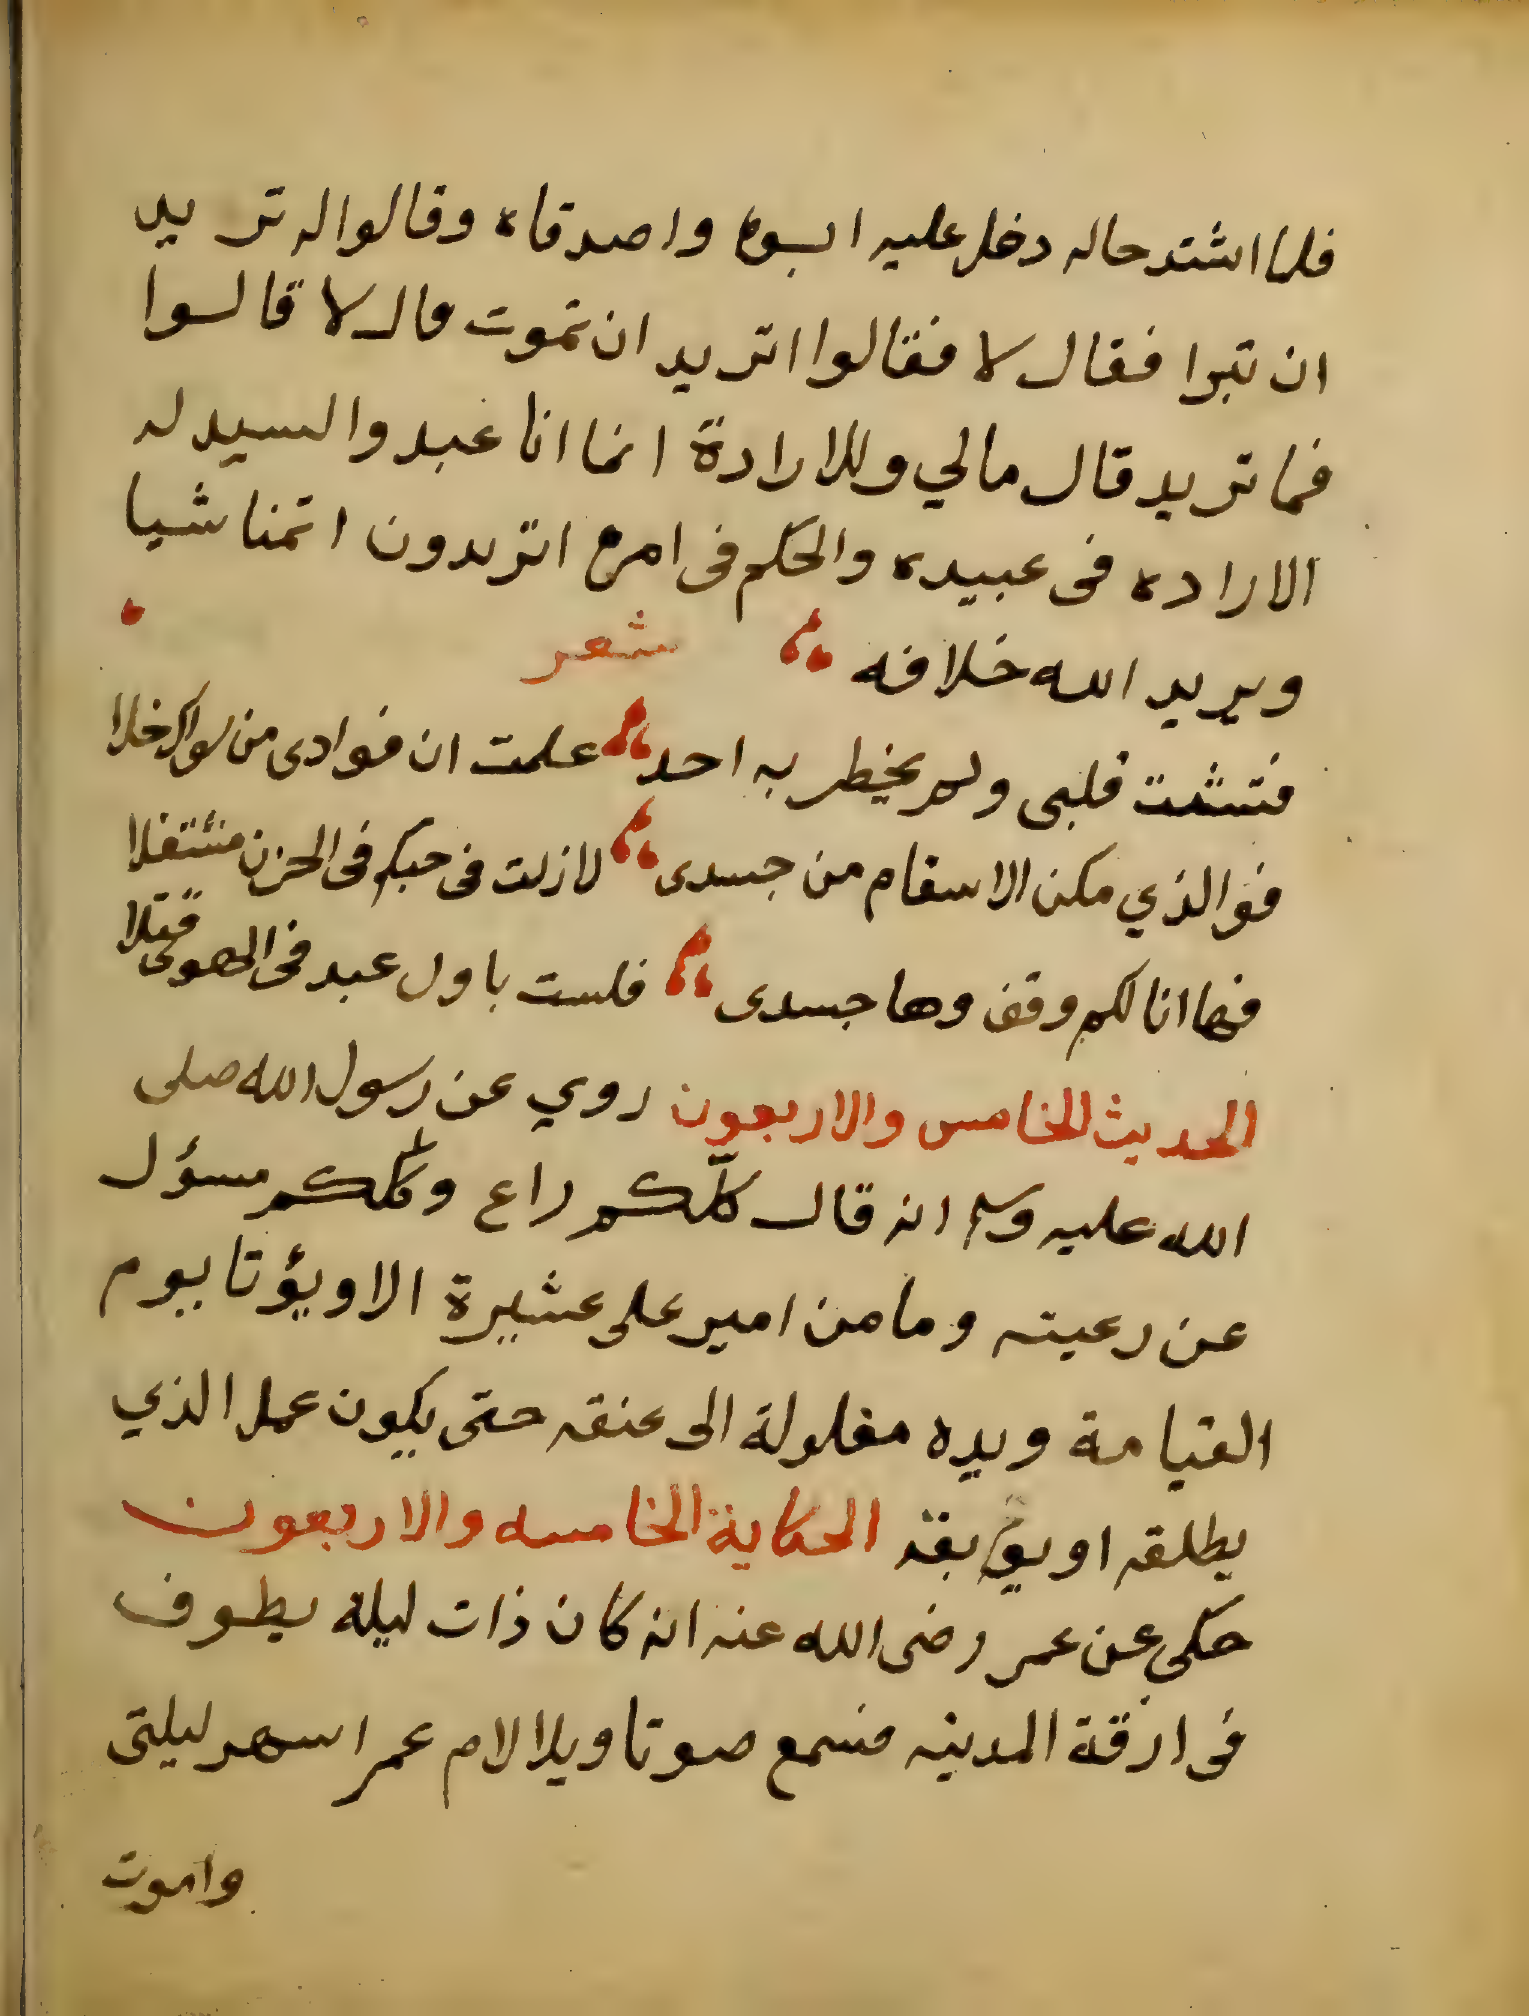 فلما اشتد حاله دخل عليه ابوه واصدقاه وقالوا له تريد
ان تبرا فقال لا فقالوا اتريد ان تموت قال لا قالوا
فما تريد قال مالي وللارادة انما انا عبد والسيد له
الاراده فى عبيده والحكم فى امره اتريدون اتمنا شيا
ويريد الله خلافه شعر
فتشت قلبى ولم يخطر به احد علمت ان فوادى من سواك خلا
فوالذي مكن الاسقام من جسدى لازلت فى حبكم فى الحزن منشتغلا
فها انا لكم وقف وها جسدى فلست باول عبد فى الهوى قتلا
الحديث الخامس والاربعون روي عن رسول الله صلى
الله عليه وسلم انه قال كلّكم راع وكلكم مسؤل
عن رعيته وما من امير على عشيرة الا ويؤتا بيوم
القيامة ويده مغلولة الى عنقه حتى يكون عمل الذي
يطلقه او يوبقه الحكاية الخامسه والاربعون
حكى عن عمر رضى الله عنه انه كان ذات ليلة يطوف
فى ازقة المدينه فسمع صوتا ويلا لام عمر اسهر ليلتى
واموت